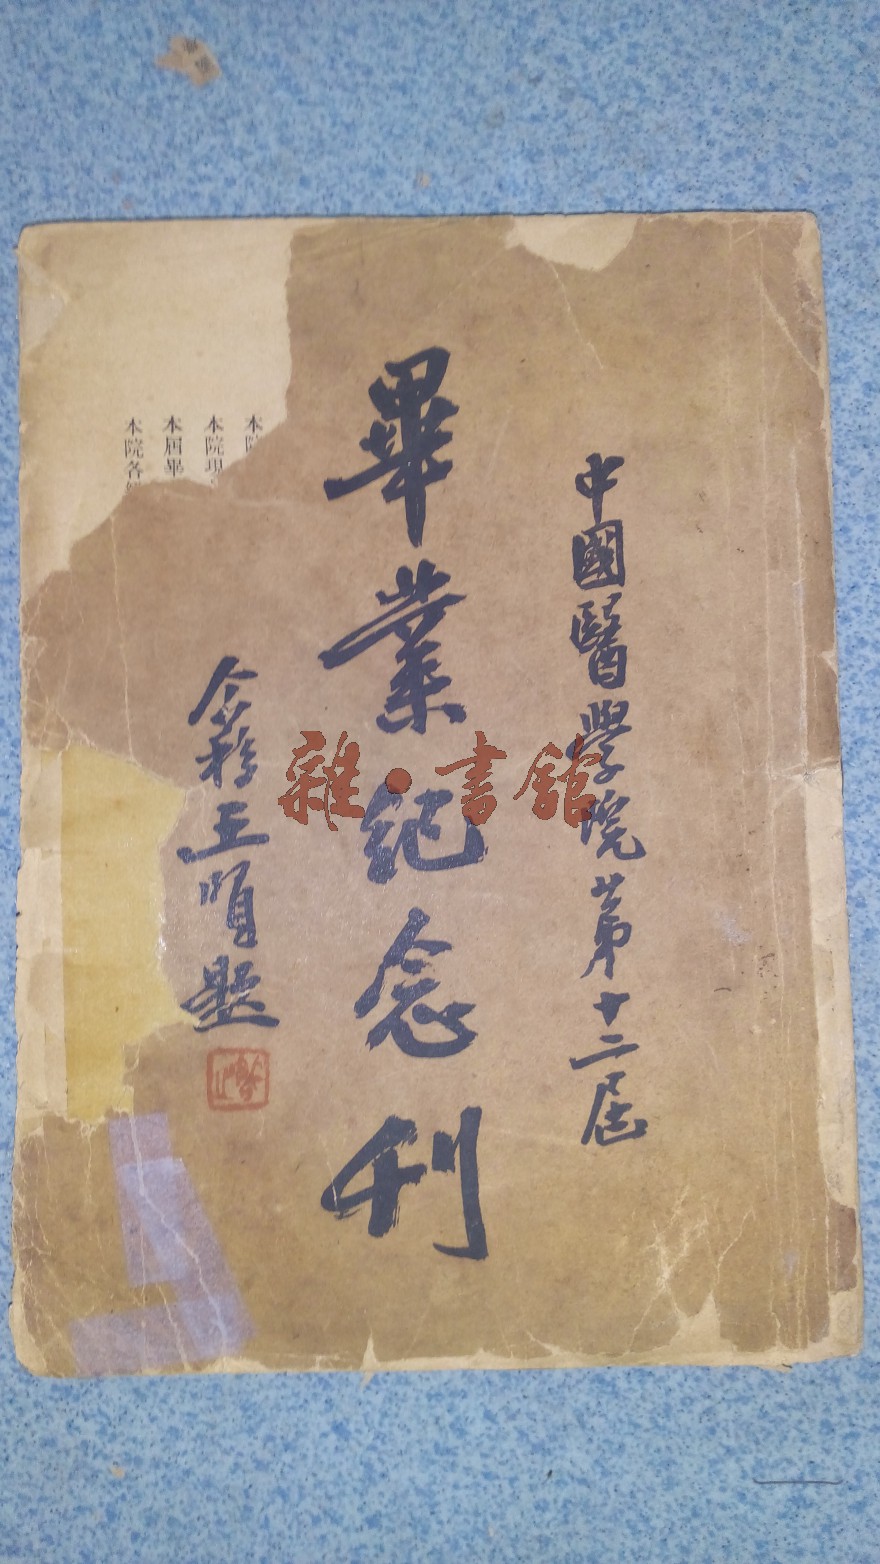 中國醫學院第十二屆
畢業紀念刊
王順題
本院
本院現
本屆畢
本院各
雜·書館